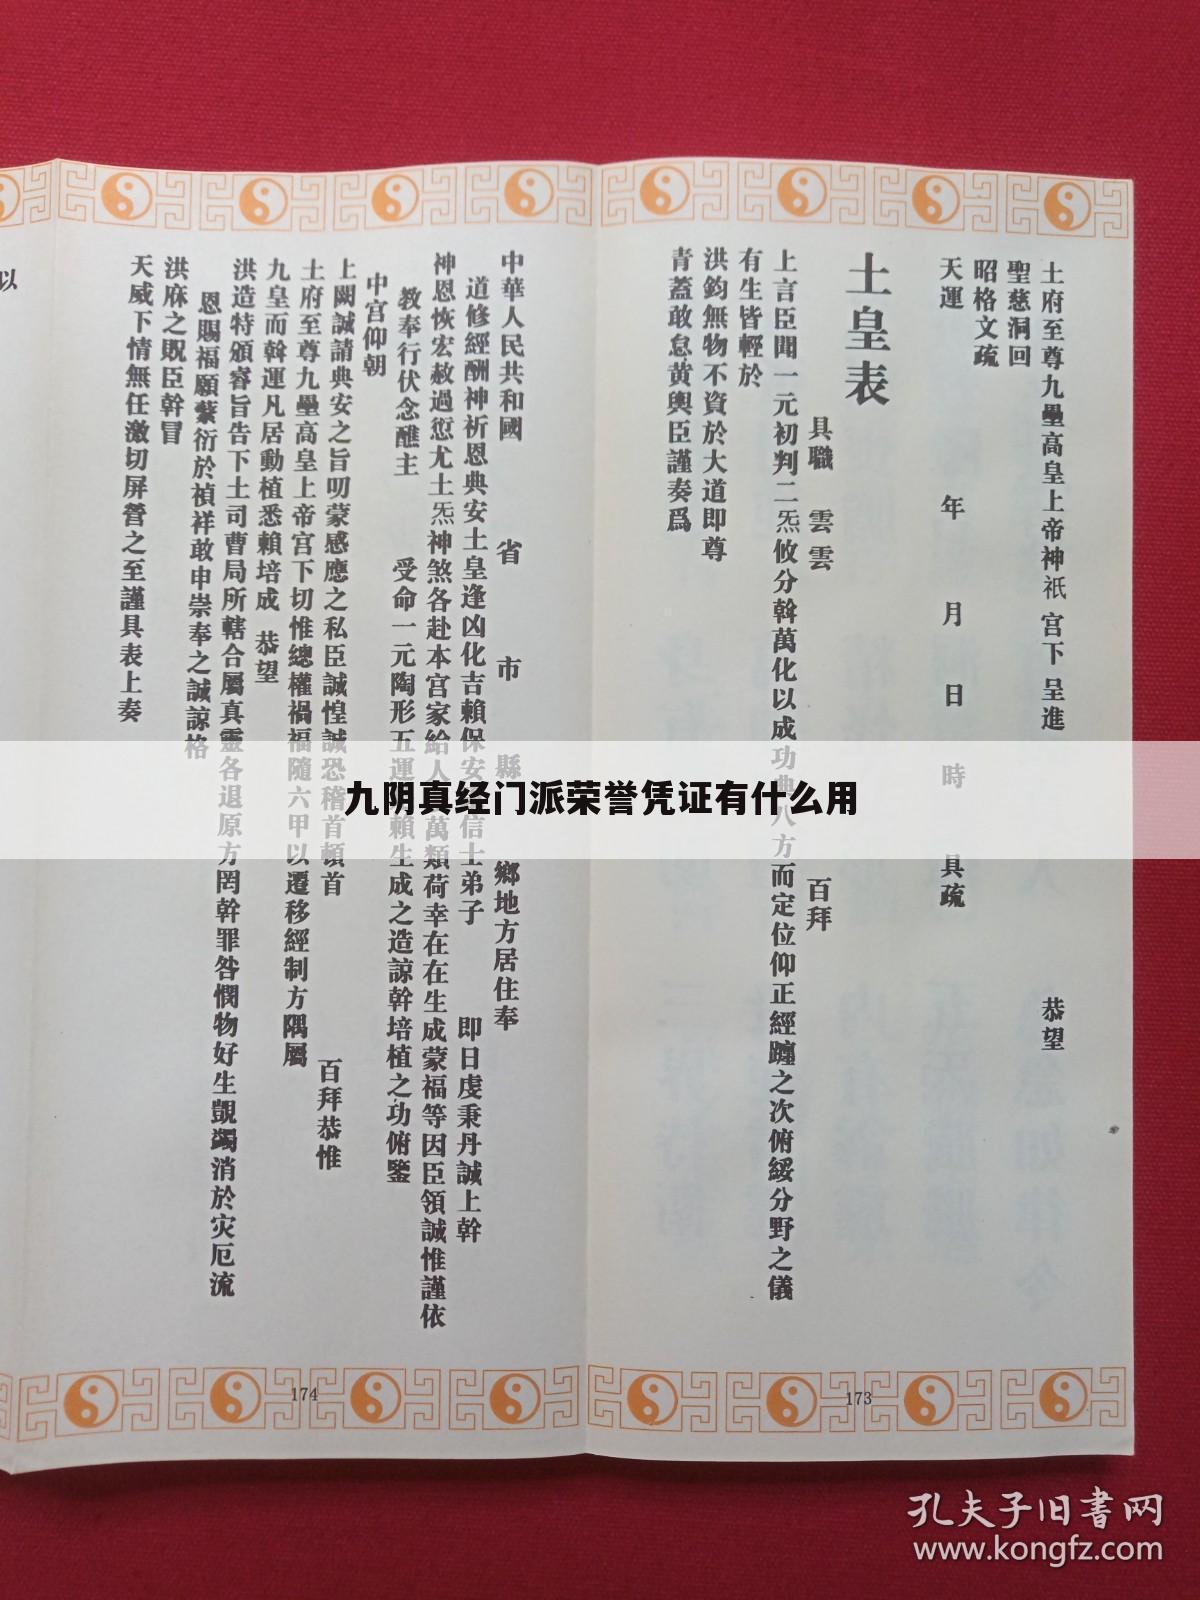 土府至尊九壘高皇上帝神祇 宫下 呈進 恭望
聖慈洞回
昭格文疏
天運 年 月 日 時 具疏
土皇表
具職 雲雲 百拜
上言臣聞一元初判二炁攸分斡萬化以成功典八方而定位仰正經躔之次俯綏分野之儀
有生皆輕於
洪鈞無物不資於大道即尊
青蓋敢怠黄輿臣謹奏爲
173
中華人民共和國 省 市 縣 鄉地方居住奉
道修經酬神祈恩典安土皇逢凶化吉賴保安信士弟子 即日虔秉丹誠上幹
神恩恢宏赦過愆尤土炁神煞各赴本宫家給人萬類荷幸在在生成蒙福等因臣領誠惟謹依
教奉行伏念醮主 受命一元陶形五運賴生成之造諒幹培植之功俯鑒
中宫仰朝
上闕誠請典安之旨叨蒙感應之私臣誠惶誠恐稽首頓首 百拜恭惟
土府至尊九壘高皇上帝宫下切惟總權禍福隨六甲以遷移經制方隅屬
九皇而斡運凡居動植悉賴培成 恭望
洪造特頒睿旨告下土司曹局所轄合屬真靈各退原方罔幹罪咎憫物好生覬蠲消於灾厄流
恩賜福願蘩衍於禎祥敢申崇奉之誠諒格
洪庥之貺臣幹冒
天威下情無任激切屏營之至謹具表上奏
174
以
九阴真经门派荣誉凭证有什么用
孔夫子旧书网
www.kongfz.com